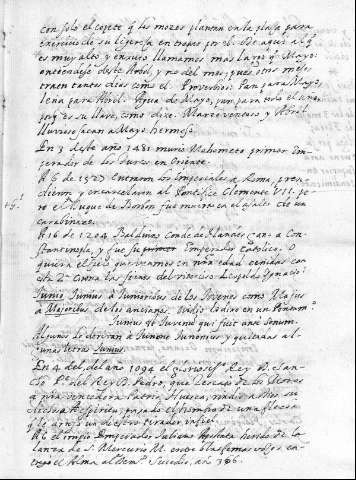 con solo el cogete q̃ los mozos plantan en la plaça para
exercicio de su ligereza en trepar por el. De aqui al q̃
es muy alto y enjuto llamamos mas largo q̃ Mayo.
entiendese deste Arbol, y no del mes, pues otros mes
traen tantos dias como el. Proverbios: Pan para Mayo,
leña para Abril. Agua de Mayo, pan para todo el año.
porq̃ es su llave, como dixe. Marzo ventoso, y Abril
lluvioso sacan a Mayo hermoso.
En 3 deste año 1481 murio Mahometo primer Em
perador de los Turcos en Oriente.
A 6 de 1527 entraron los Imperiales a Roma, pren
dieron y encarcelaron al Pontifice Clemente VII. pe
ro el Duque de Borbon fue muerto en el asalto de un
carabinazo.
A 16 de 1204 Balduino Conde de Flandes, a Co
nstantinopla, y fue su primer Emperador Catolico. O
quiera el cielo que veamos en nr̃a edad ceñidas con
esta Corona las sienes del vitorioso Leopoldo Ignacio!
Junio, Junius à Junioribus de los Jovenes como Majus
à Majoribus, de los ancianos. Ovidio
Junius est Juvenū qui fuit ante senum.
Algunos lo derivan à Junone Junonius, y quitadas al
gunas letras Junius.
En 4 del, del año 1094 el Rey D. San
cho Pº. del Rey D. Pedro, que
a nr̃a vencedora Patria Huesca, rindio a Dios su
pasado el de una flecha
q̃ le arrojo un diestro tirador infiel.
A 6 el impio Emperador Juliano Apostata herido de la
lanza de S. Mercurio M. entre blasfemias
el Alma al año 366.